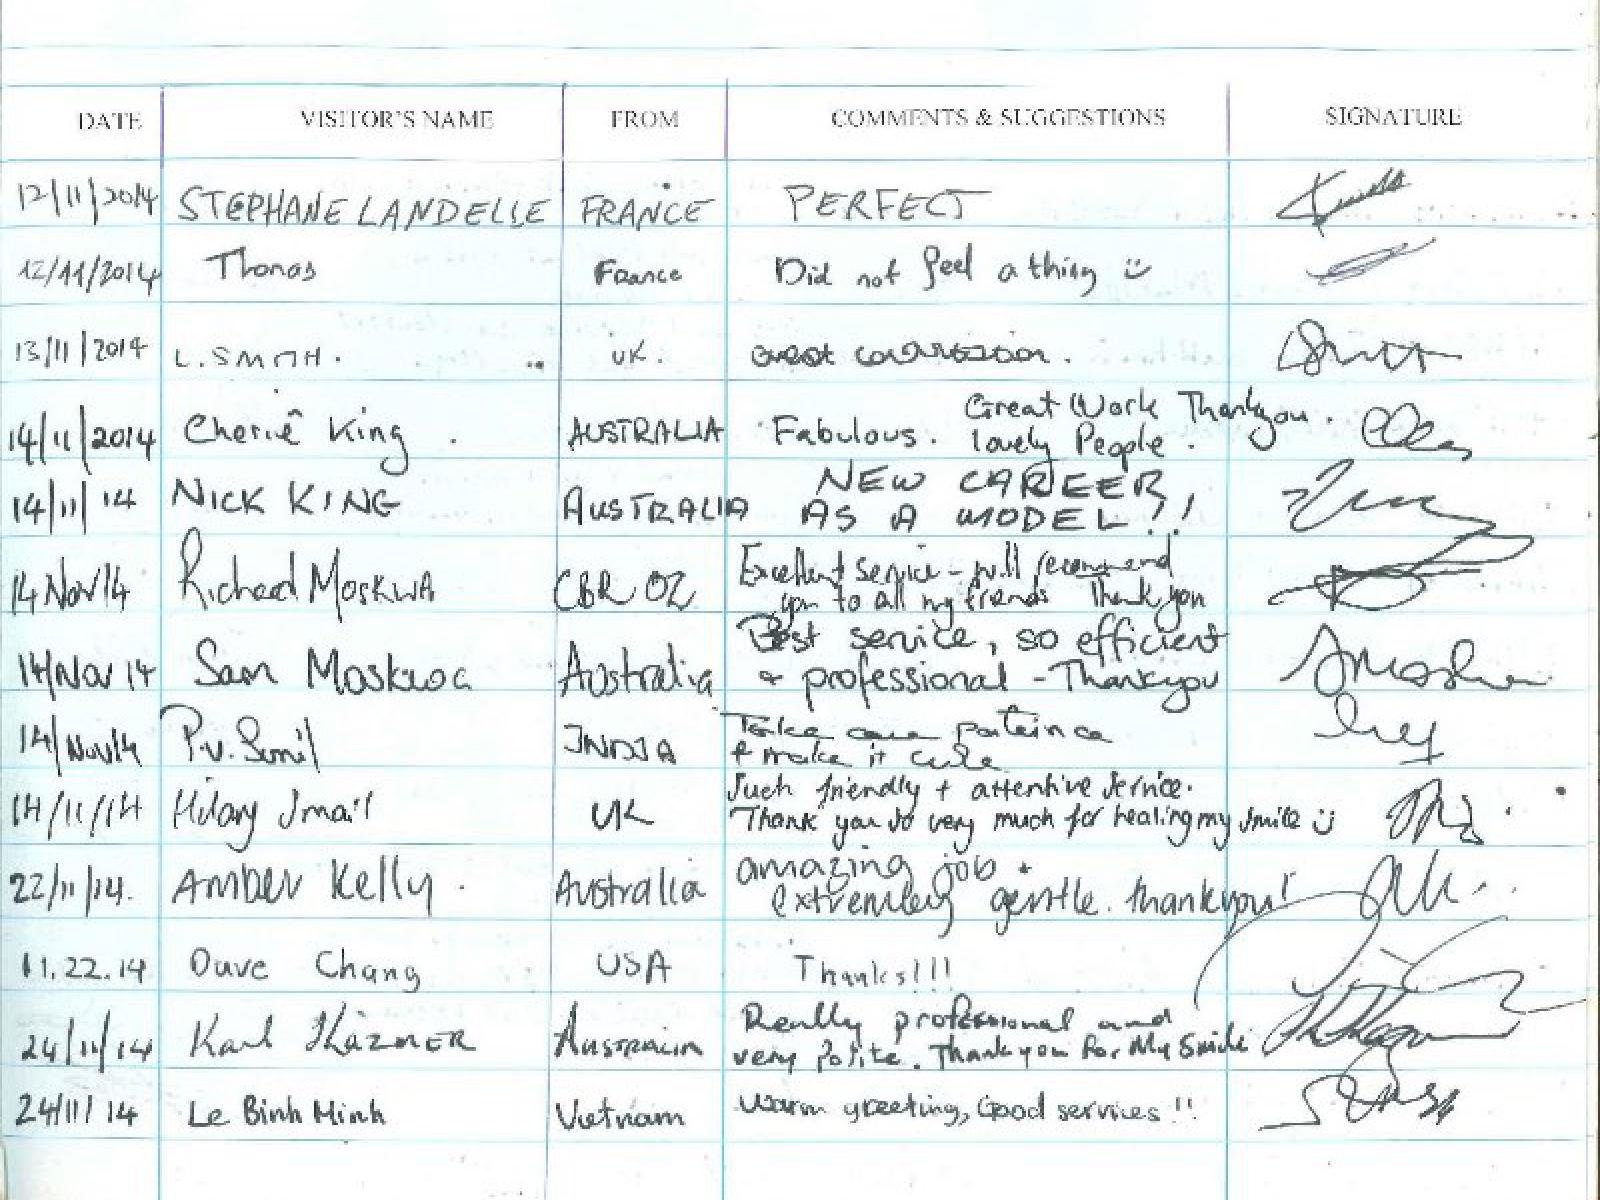 DATE VISITOR'S NAME FROM COMMENTS & SUGGESTIONS SIGNATURE
12/11/2014 STEPHANE LANDELLE FRANCE PERFECT
12/11/2014 Thomas France Did not feel a thing
13/11/2014 L. SMITH. UK.
Great Work Thankyou.
14/11/2014 Cherie King. AUSTRALIA Fabulous. lovely People.
NEW CAREER
14/11/14 NICK KING AUSTRALIA AS A MODEL!!
Excellent service - will recommend
14 Nov 14 Richard Moskwa CBR OZ you to all my friends Thank you
Best service, so efficient
14/Nov 14 Sam Moskwa Australia & professional - Thankyou
Take care
14/Nov/14 P.v. Sunil INDIA & make it
Such friendly + attentive service.
14/11/14 Hilary Smail UK Thank you so very much for healing my smile
amazing job +
22/11/14. Amber Kelly. Australia extremely gentle. thankyou!
11.22.14 Dave Chang USA Thanks!!!
Really professional and
24/11/14 Karl Australia very Polite. Thank you for My Smile
24/11/14 Le Binh Minh Vietnam Warm greeting, Good services!!